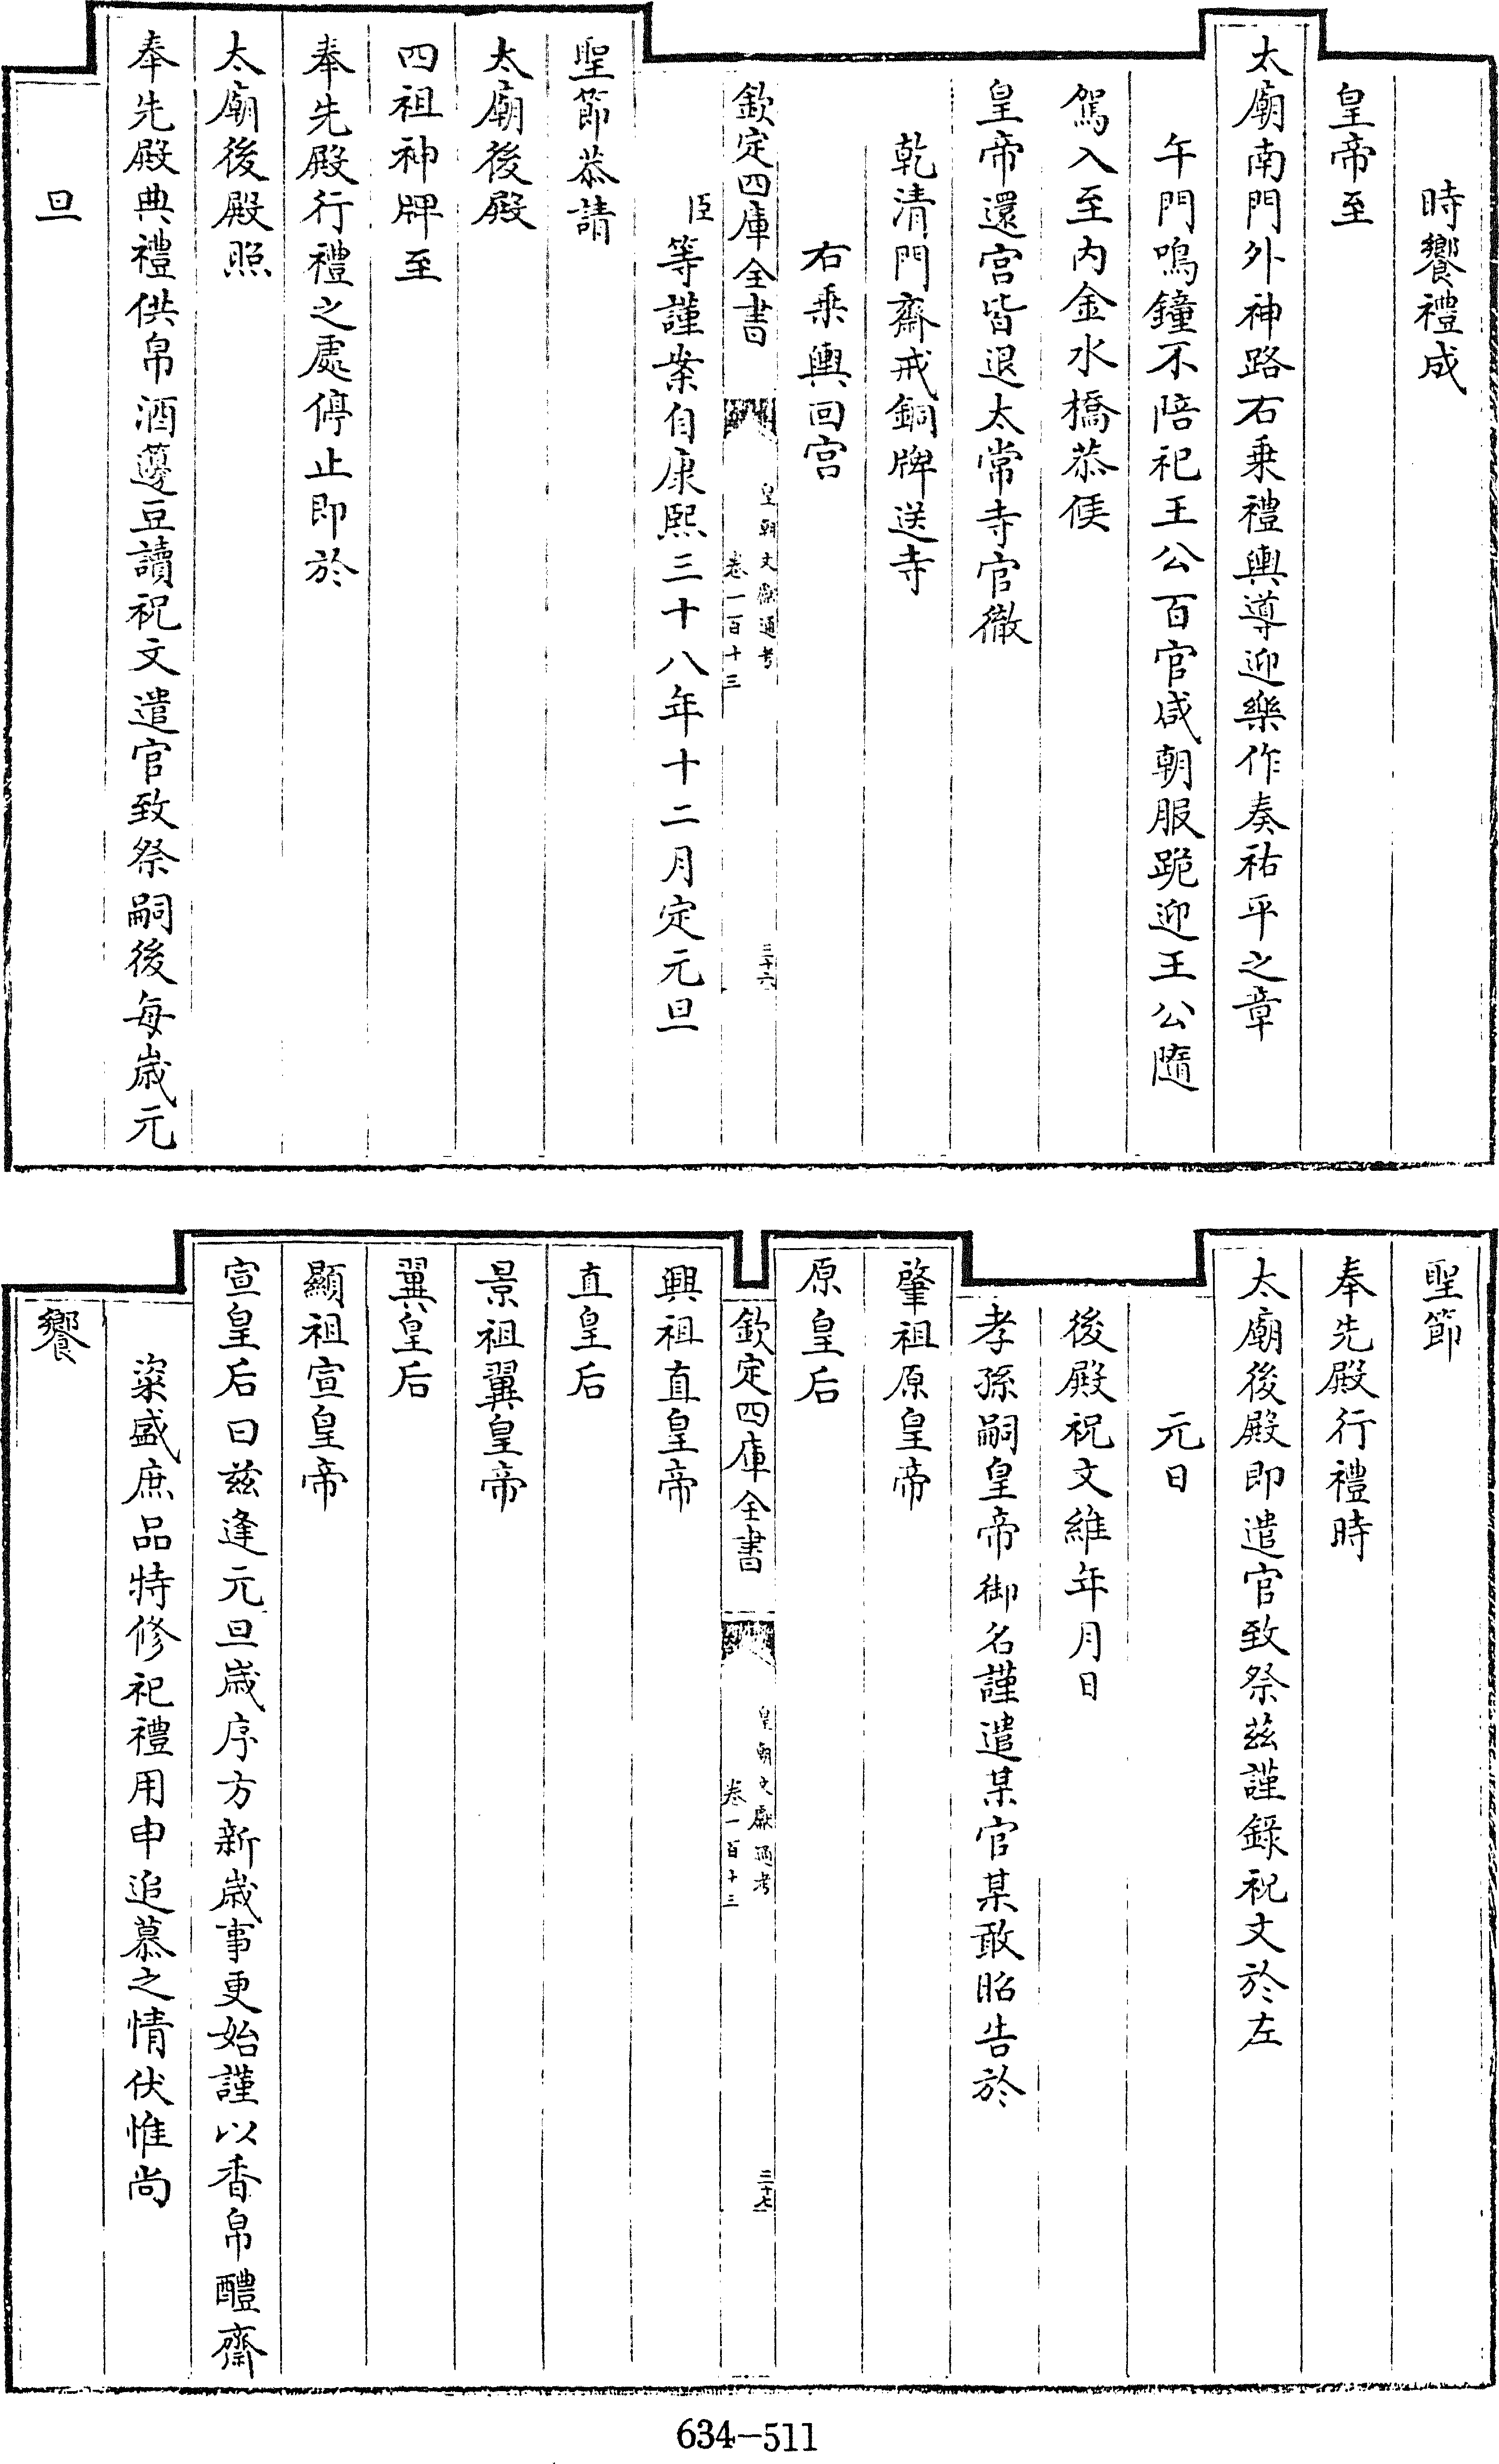 時饗禮成
皇帝至
太廟南門外神路右乗禮輿導迎樂作奏祐平之章
午門鳴鐘不陪祀王公百官咸朝服跪迎王公隨
駕入至内金水橋恭俟
皇帝還宫皆退太常寺官徹
乾清門齋戒銅牌送寺
右乗輿回宫
欽定四庫全書
皇朝文獻通考
卷一百十三
三十六
臣等謹案自康熙三十八年十二月定元旦
聖節恭請
太廟後殿
四祖神牌至
奉先殿行禮之處停止即於
太廟後殿照
奉先殿典禮供帛酒籩豆讀祝文遣官致祭嗣後每歲元
旦
聖節
奉先殿行禮時
太廟後殿即遣官致祭兹謹錄祝文於左
元日
後殿祝文維年月日
孝孫嗣皇帝御名謹遣某官某敢昭告於
肇祖原皇帝
原皇后
欽定四庫全書
皇朝文獻通考
卷一百十三
三十七
興祖直皇帝
直皇后
景祖翼皇帝
翼皇后
顯祖宣皇帝
宣皇后曰兹逢元旦歲序方新歲事更始謹以香帛醴齋
粢盛庶品特修祀禮用申追慕之情伏惟尚
饗
634-511